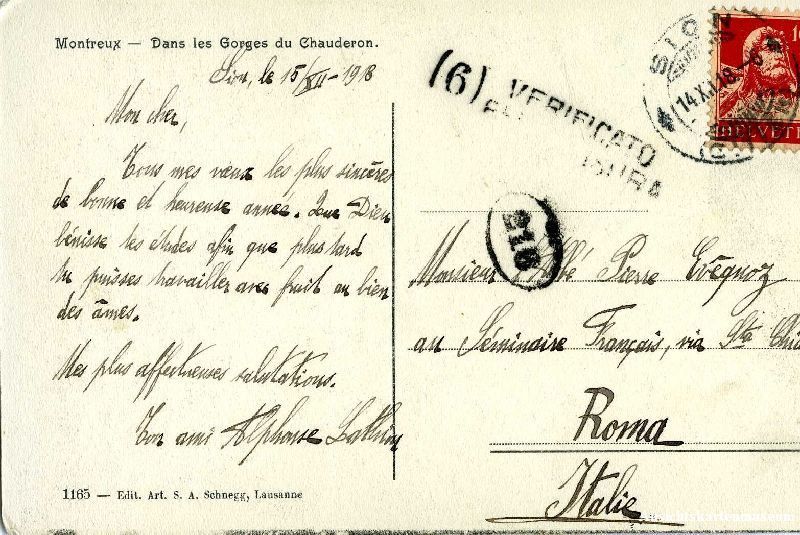 Montreux — Dans les Gorges du Chauderon.
Sion, le 15/XII - 1918
Mon cher,
Tous mes vœux les plus sincères
de bonne et heureuse année. Que Dieu
bénisse tes études afin que plus tard
tu puisses travailler avec fruit au bien
des âmes.
Mes plus affectueuses salutations.
Ton ami Alphonse
1165 — Edit. Art. S. A. Schnegg, Lausanne
(6) VERIFICATO
SION
HELVETIA
216
Monsieur l'Abbé Pierre
au Séminaire Français, via Sta
Roma
Italie